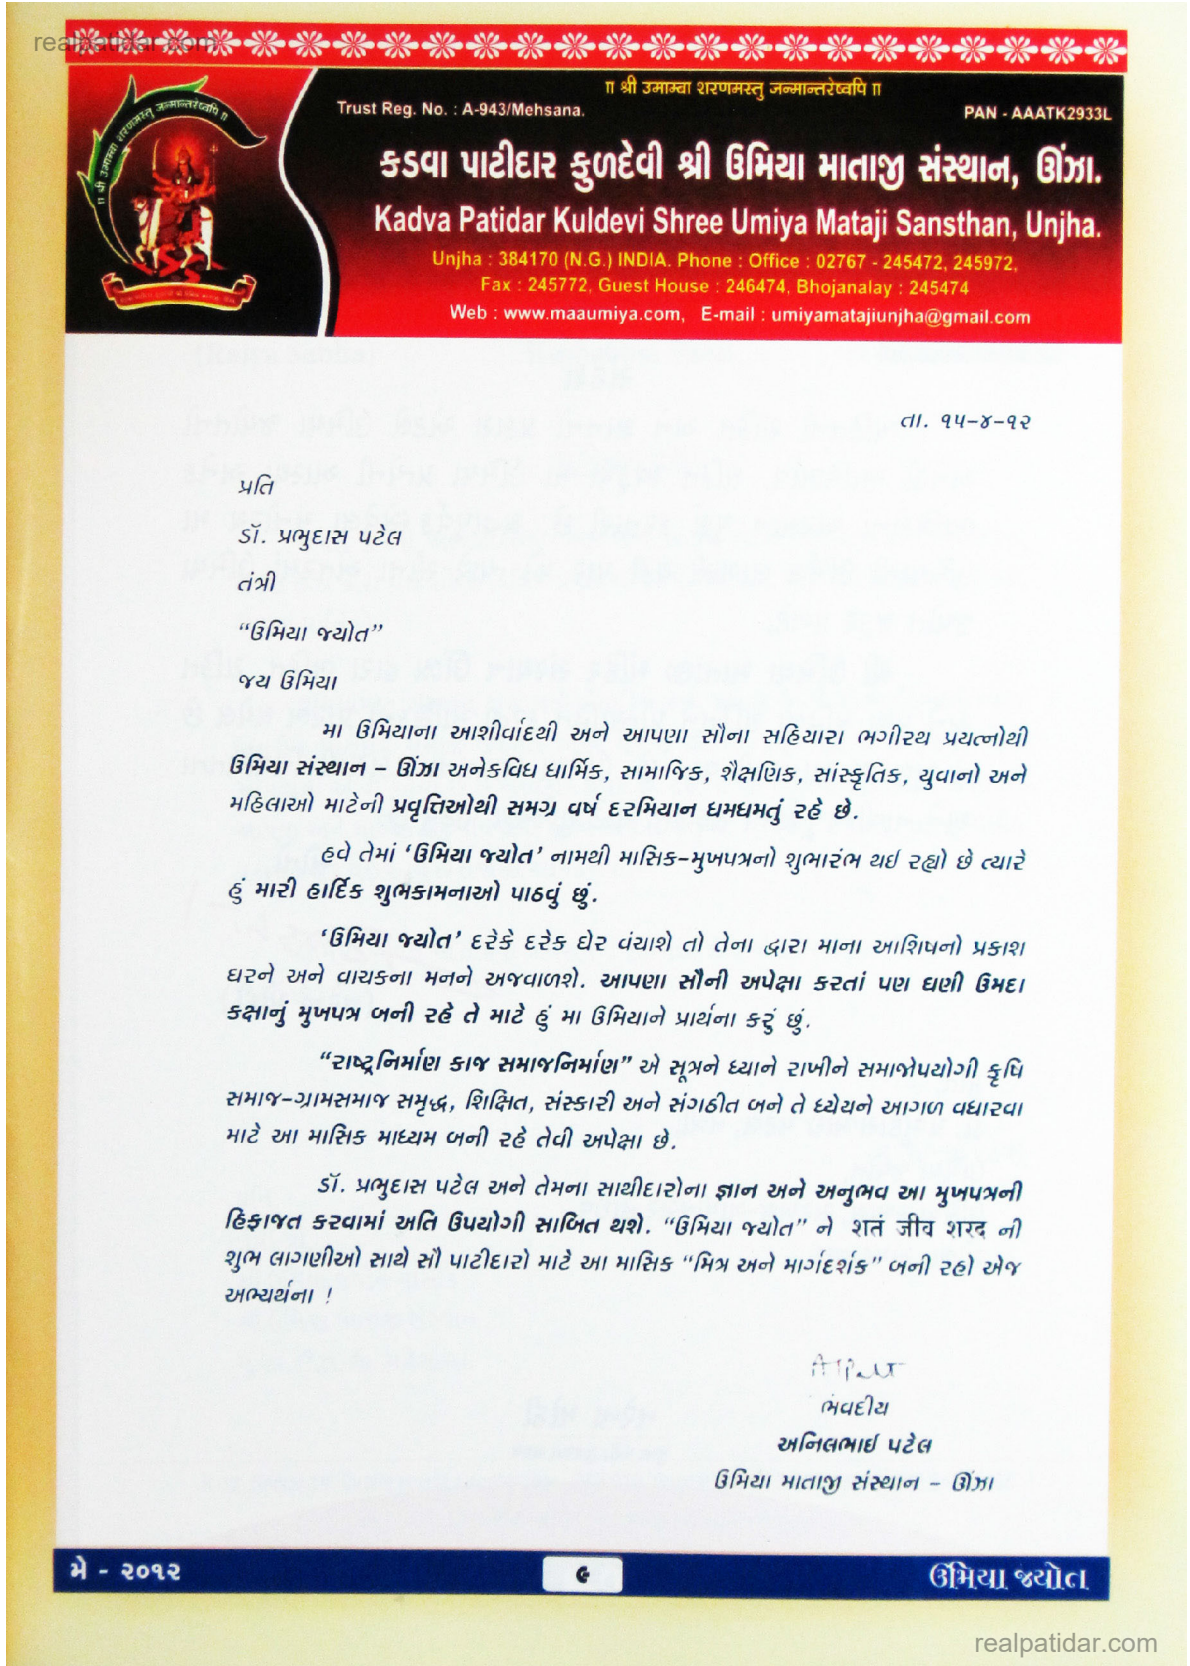 realpatidar.com
॥ श्री उमाम्बा शरणमस्तु जन्मान्तरेष्वपि ॥
॥ श्री उमाम्बा शरणमस्तु जन्मान्तरेष्वपि ॥
Trust Reg. No. : A-943/Mehsana.
PAN - AAATK2933L
કડવા પાટીદાર કુળદેવી શ્રી ઉમિયા માતાજી સંસ્થાન, ઊંઝા.
Kadva Patidar Kuldevi Shree Umiya Mataji Sansthan, Unjha.
Unjha : 384170 (N.G.) INDIA. Phone : Office : 02767 - 245472, 245972,
Fax : 245772, Guest House : 246474, Bhojanalay : 245474
Web : www.maaumiya.com, E-mail : umiyamatajiunjha@gmail.com
તા. ૧૫-૪-૧૨
પ્રતિ
ડૉ. પ્રભુદાસ પટેલ
તંત્રી
“ઉમિયા જ્યોત”
જય ઉમિયા
મા ઉમિયાના આશીર્વાદથી અને આપણા સૌના સહિયારા ભગીરથ પ્રયત્નોથી
ઉમિયા સંસ્થાન – ઊંઝા અનેકવિધ ધાર્મિક, સામાજિક, શૈક્ષણિક, સાંસ્કૃતિક, યુવાનો અને
મહિલાઓ માટેની પ્રવૃત્તિઓથી સમગ્ર વર્ષ દરમિયાન ધમધમતું રહે છે.
હવે તેમાં ‘ઉમિયા જ્યોત’ નામથી માસિક-મુખપત્રનો શુભારંભ થઇ રહ્યો છે ત્યારે
હું મારી હાર્દિક શુભકામનાઓ પાઠવું છું.
‘ઉમિયા જ્યોત’ દરેકે દરેક ઘેર વંચાશે તો તેના દ્વારા માના આશિષનો પ્રકાશ
ઘરને અને વાચકના મનને અજવાળશે. આપણા સૌની અપેક્ષા કરતાં પણ ઘણી ઉમદા
કક્ષાનું મુખપત્ર બની રહે તે માટે હું મા ઉમિયાને પ્રાર્થના કરું છું.
“રાષ્ટ્રનિર્માણ કાજ સમાજનિર્માણ” એ સૂત્રને ધ્યાને રાખીને સમાજોપયોગી કૃષિ
સમાજ-ગ્રામસમાજ સમૃદ્ધ, શિક્ષિત, સંસ્કારી અને સંગઠીત બને તે ધ્યેયને આગળ વધારવા
માટે આ માસિક માધ્યમ બની રહે તેવી અપેક્ષા છે.
ડૉ. પ્રભુદાસ પટેલ અને તેમના સાથીદારોના જ્ઞાન અને અનુભવ આ મુખપત્રની
હિફાજત કરવામાં અતિ ઉપયોગી સાબિત થશે. “ઉમિયા જ્યોત” ને शतं जीव शरद ની
શુભ લાગણીઓ સાથે સૌ પાટીદારો માટે આ માસિક “મિત્ર અને માર્ગદર્શક” બની રહો એજ
અભ્યર્થના !
ભવદીય
અનિલભાઈ પટેલ
ઉમિયા માતાજી સંસ્થાન – ઊંઝા
મે - ૨૦૧૨
૯
ઉમિયા જ્યોત
realpatidar.com